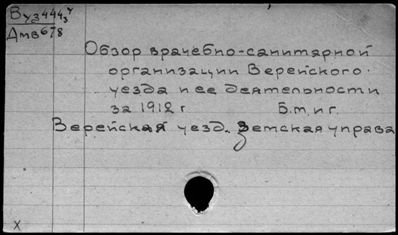 Вуз444з у
Дмв678
Обзор врачебно-санитарной
организации Верейского
уезда и ее деятельности
за 1912 г Б.м.и г.
Верейская уезд. Земская управа
х